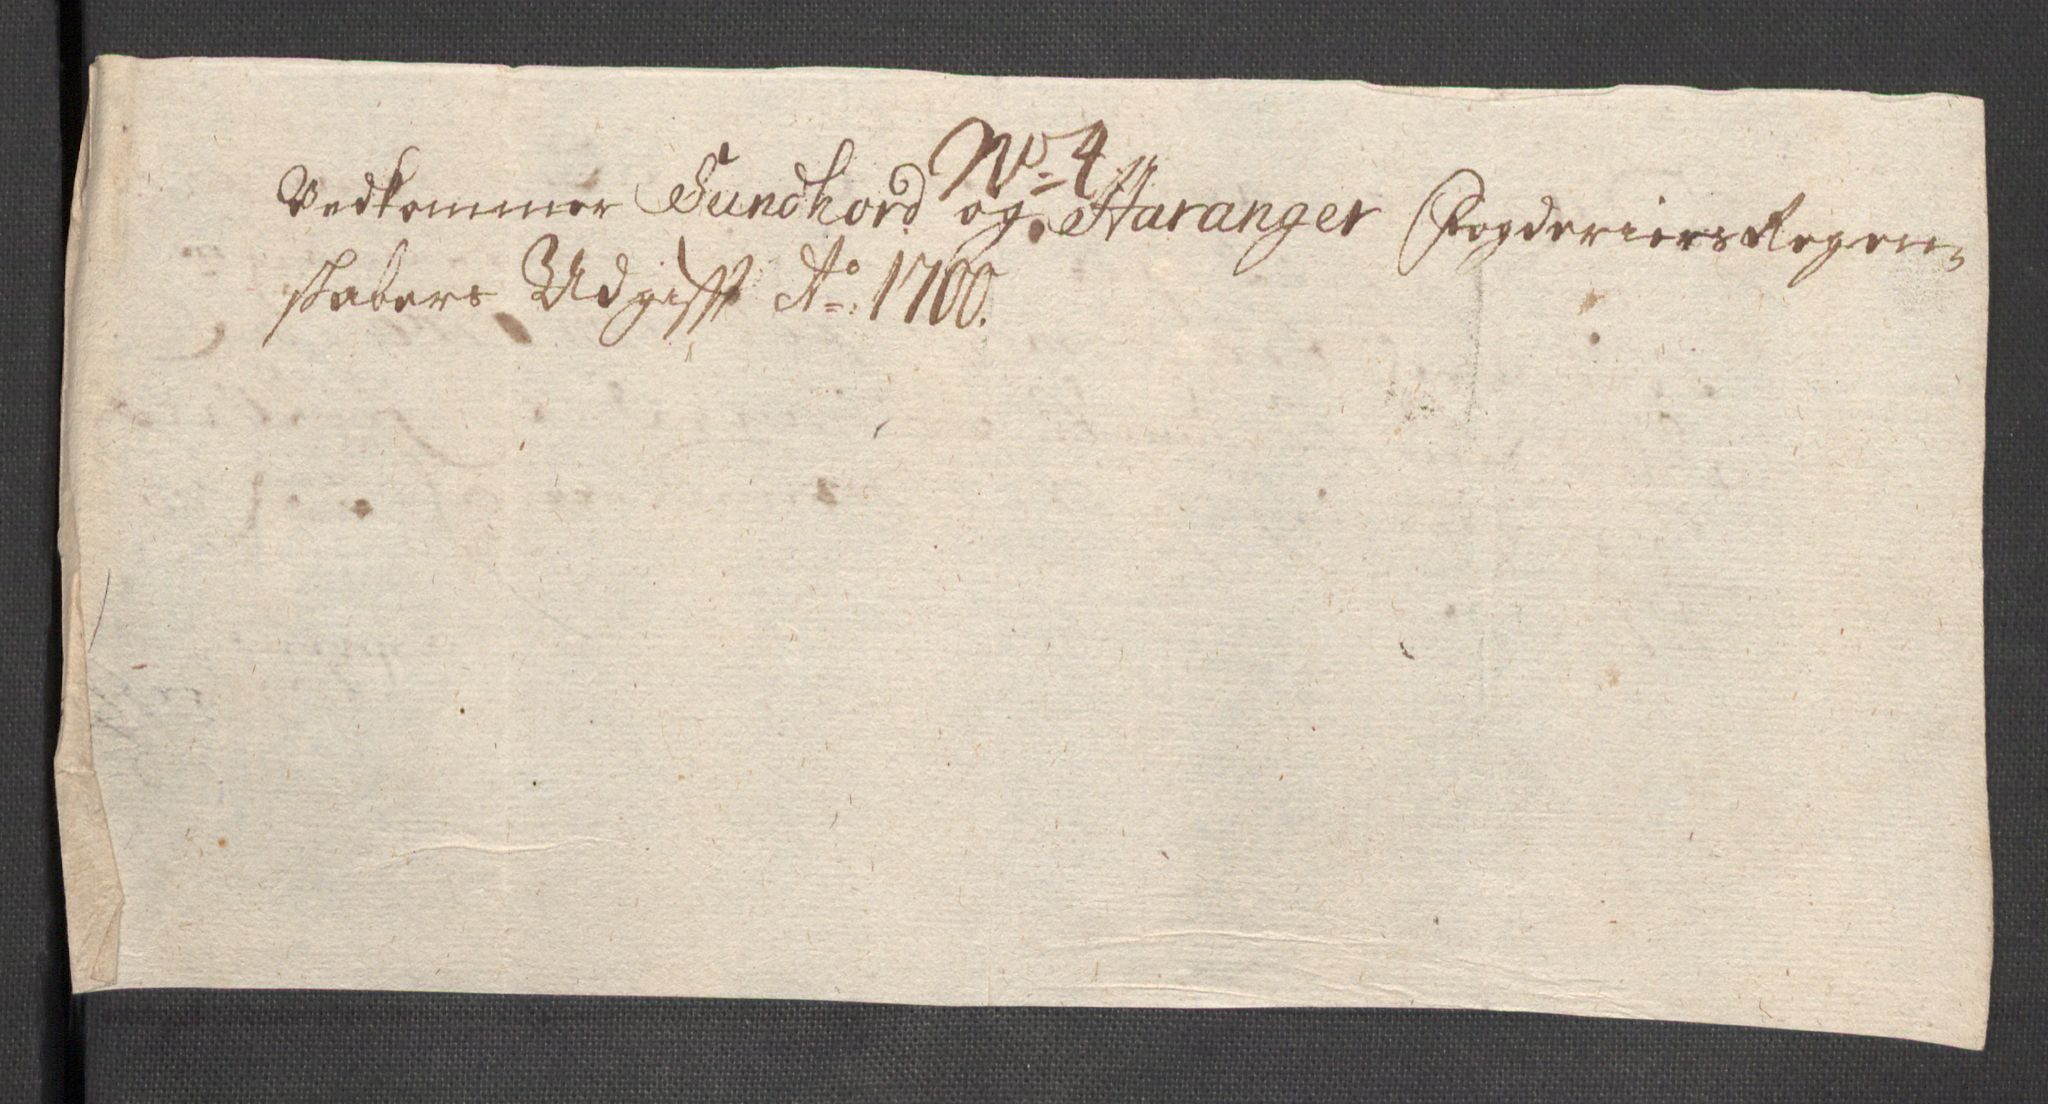 No. 4
Vedkommer Sundhord og Haranger Fogderiers Regen-
skabers Udgifft Ao. 1700.